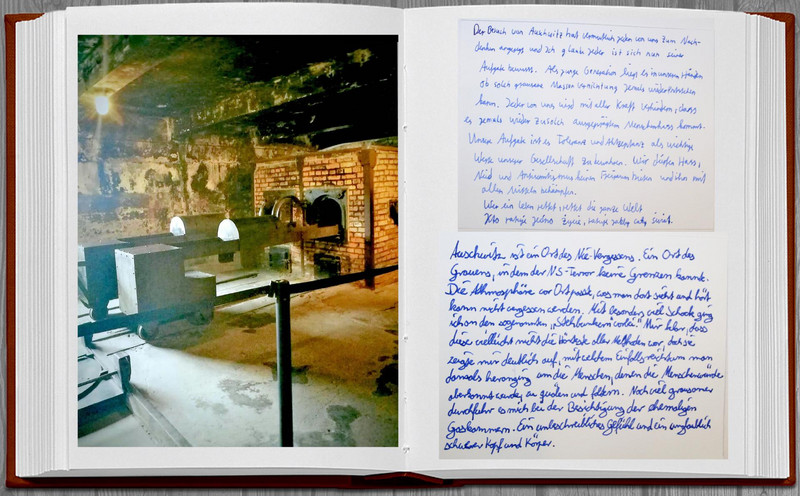 Der Besuch von Auschwitz hat vermutlich jeden von uns zum Nach-
denken angeregt und ich glaube jeder ist sich nun seiner
Aufgabe bewusst. Als junge Generation liegt es in unseren Händen
ob solch grausame Massenvernichtung jemals wiedereintreten
kann. Jeder von uns wird mit aller Kraft verhindern, dass
es jemals wieder zu solch ausgeprägtem Menschenhass kommt.
Unsere Aufgabe ist es Toleranz und Akzeptanz als wichtige
Werte unserer Gesellschaft zu bewahren. Wir dürfen Hass,
Neid und Antisemitismus keinen Freiraum bieten und ihn mit
allen Mitteln bekämpfen.
Wer ein Leben rettet, rettet die ganze Welt
Kto ratuje jedno życie, ratuje cały świat.
Auschwitz ist ein Ort des Nie-Vergessens. Ein Ort des
Grauens, in dem der NS-Terror keine Grenzen kannte.
Die Athmosphäre vor Ort passte, was man dort sieht und hört
kann nicht vergessen werden. Mit besonders viel Schock ging
ich an den sogenannten „Stehbunkern" vorbei. Mir klar, dass
diese vielleicht nicht die härteste aller Methoden war, doch sie
zeigte mir deutlich auf, mit welchem Einfallsreichtum man
damals heranging um die Menschen, denen die Menschenwürde
aberkannt wurde, zu quälen und foltern. Noch viel grausamer
durchfuhr es mich bei der Besichtigung der ehemaligen
Gaskammern. Ein unbeschreibliches Gefühl und ein unglaublich
schwerer Kopf und Körper.